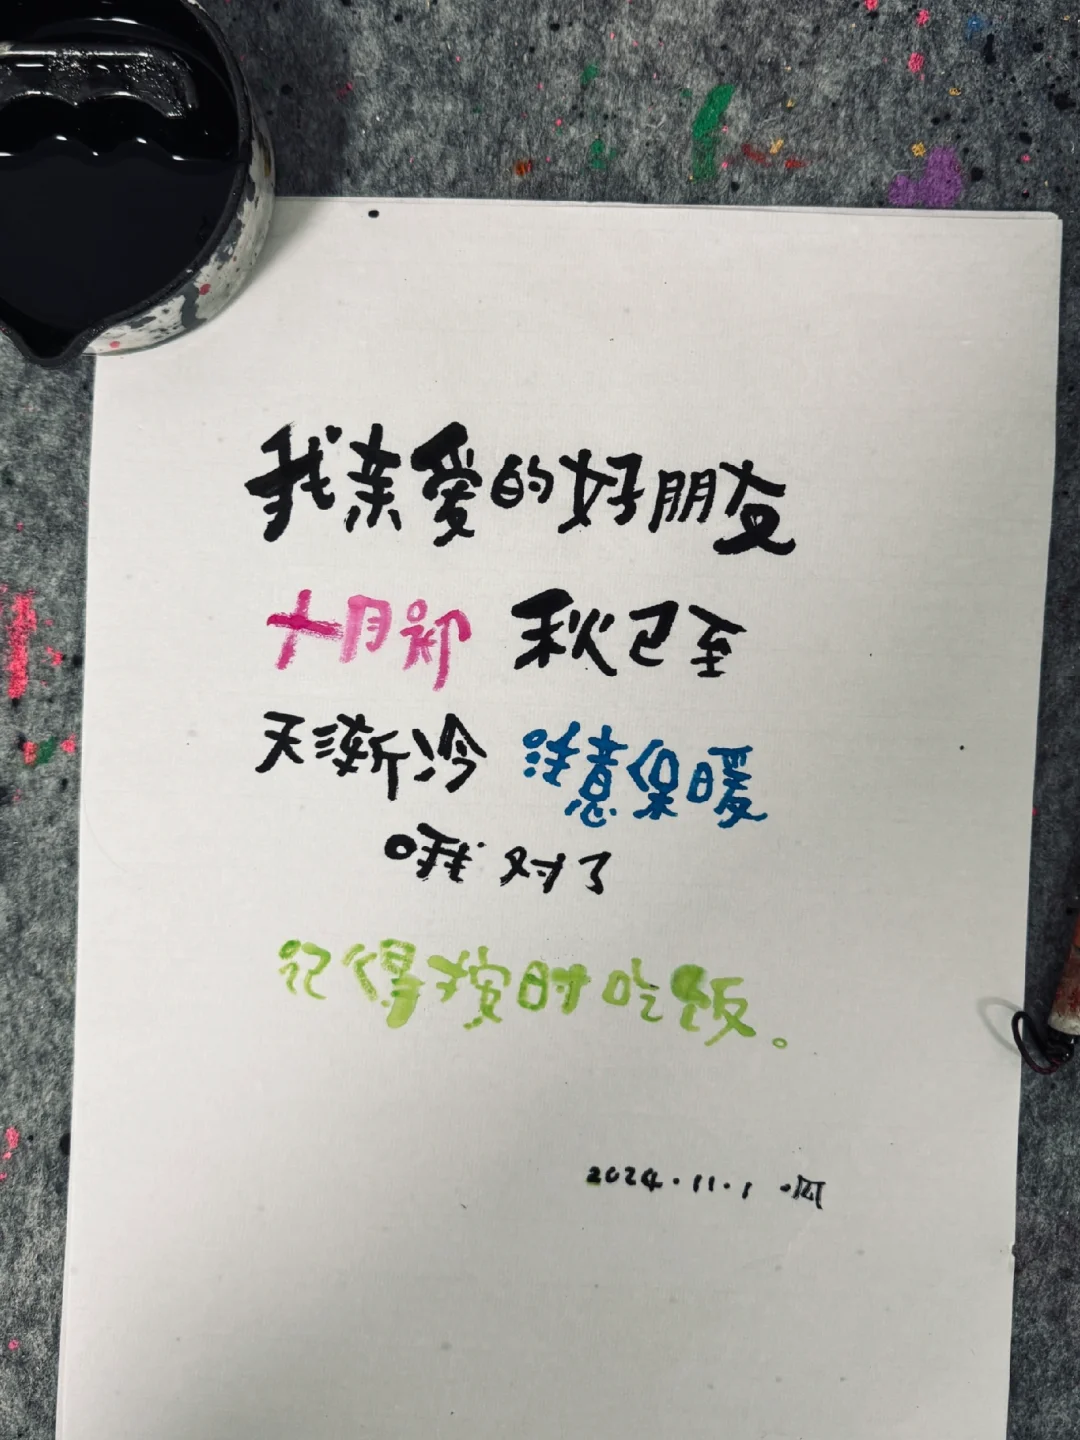 我亲爱的好朋友
十月初 秋已至
天渐冷 注意保暖
哦 对了
记得按时吃饭。
2024.11.1